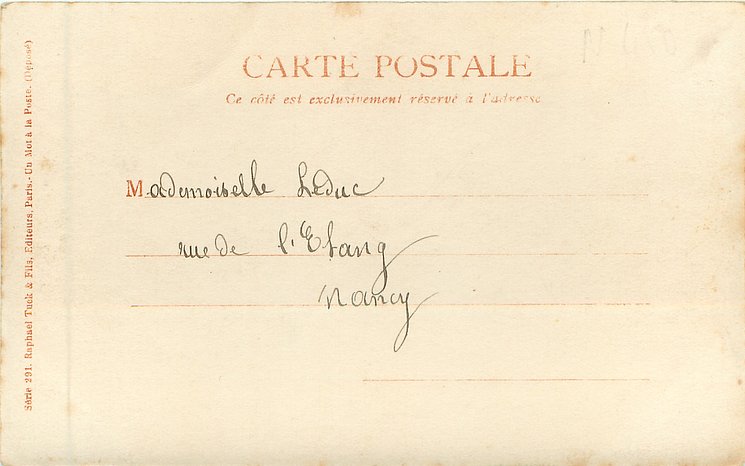 CARTE POSTALE
Ce côté est exclusivement réservé à l'adresse
Mademoiselle Leduc
rue de l'Etang
Nancy
Série 291. Raphael Tuck & Fils, Editeurs, Paris.- Un Mot à la Poste. (Déposé)